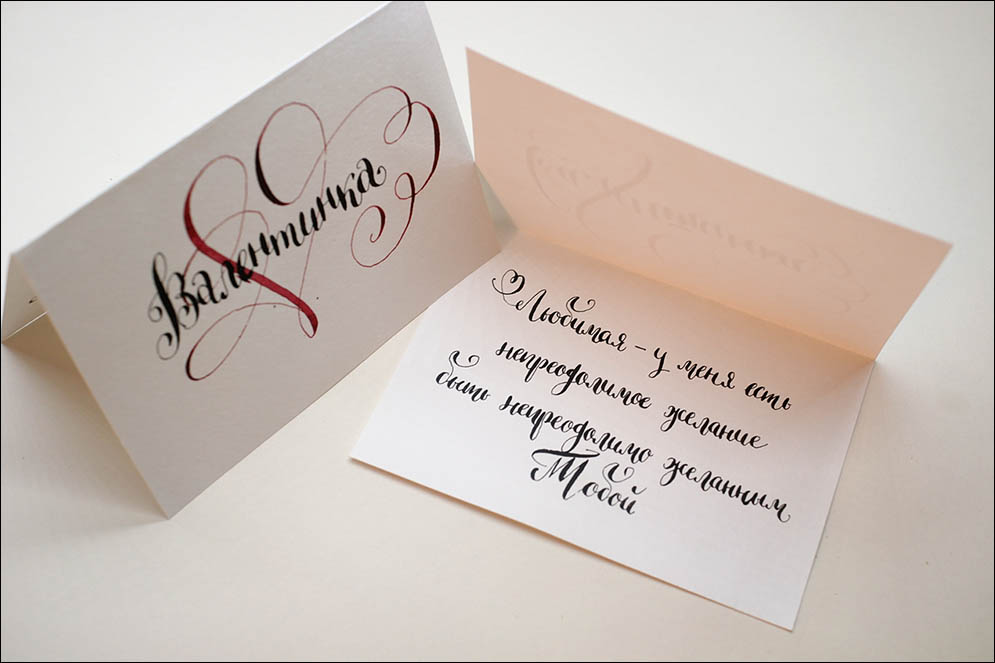 Валентинка
Любимая – у меня есть
непреодолимое желание
быть непреодолимо желанным
Тобой